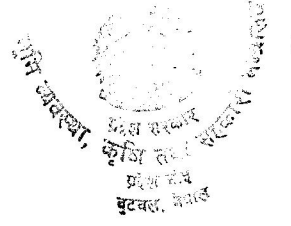 भूमि व्यवस्था, कृषि तथा सहकारी मन्त्रालय
प्रदेश सरकार
प्रदेश
बुटवल, नेपाल